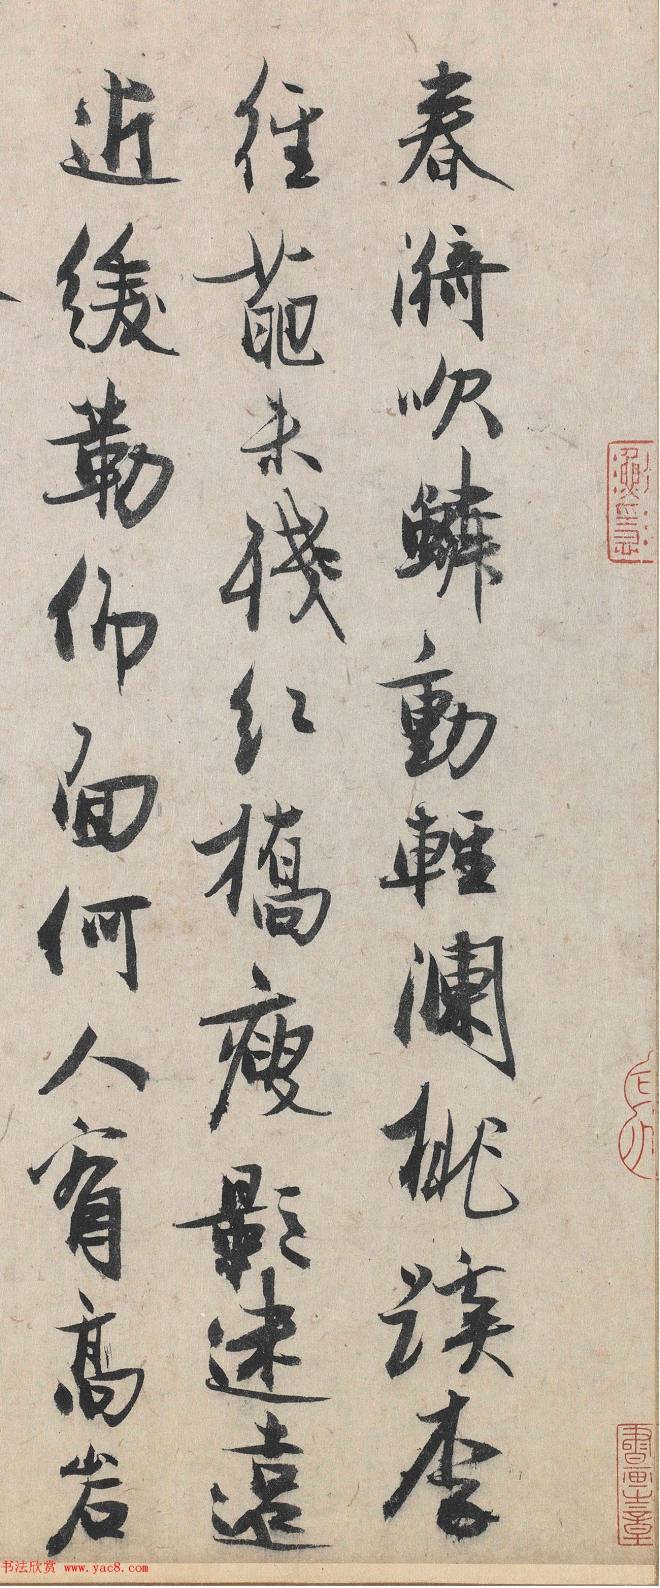 春漪吹鱗動輕瀾桃蹊李
徑葩未殘紅橋瘦影迷遠
近緩勒仰面何人看高岩
书法欣赏 www.yac8.com